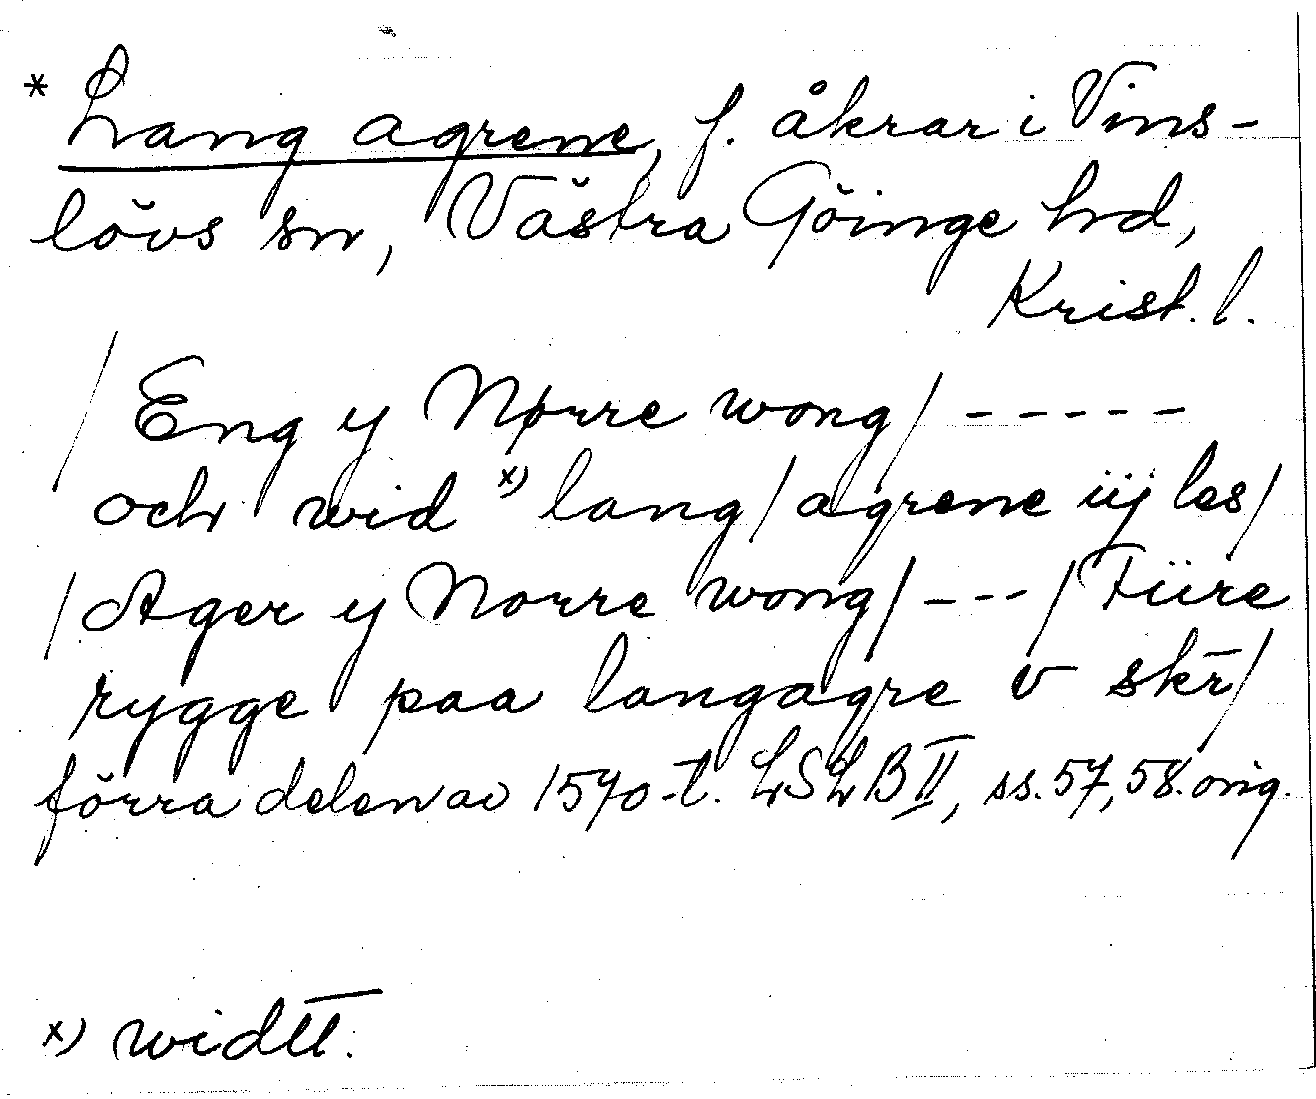 * Lang agrene, f. åkrar i Vins-
lövs sn, Västra Göinge hd,
Krist. l.
/ Eng y Nørre wong / - - - - -
och wid x) lang / agrene iij les /
/ Ager y Norre wong / - - - / Fiire
rygge paa langagre v skr̄ /
förra delen av 1570-t. LSLB II, ss. 57, 58. orig.
x) widtt.